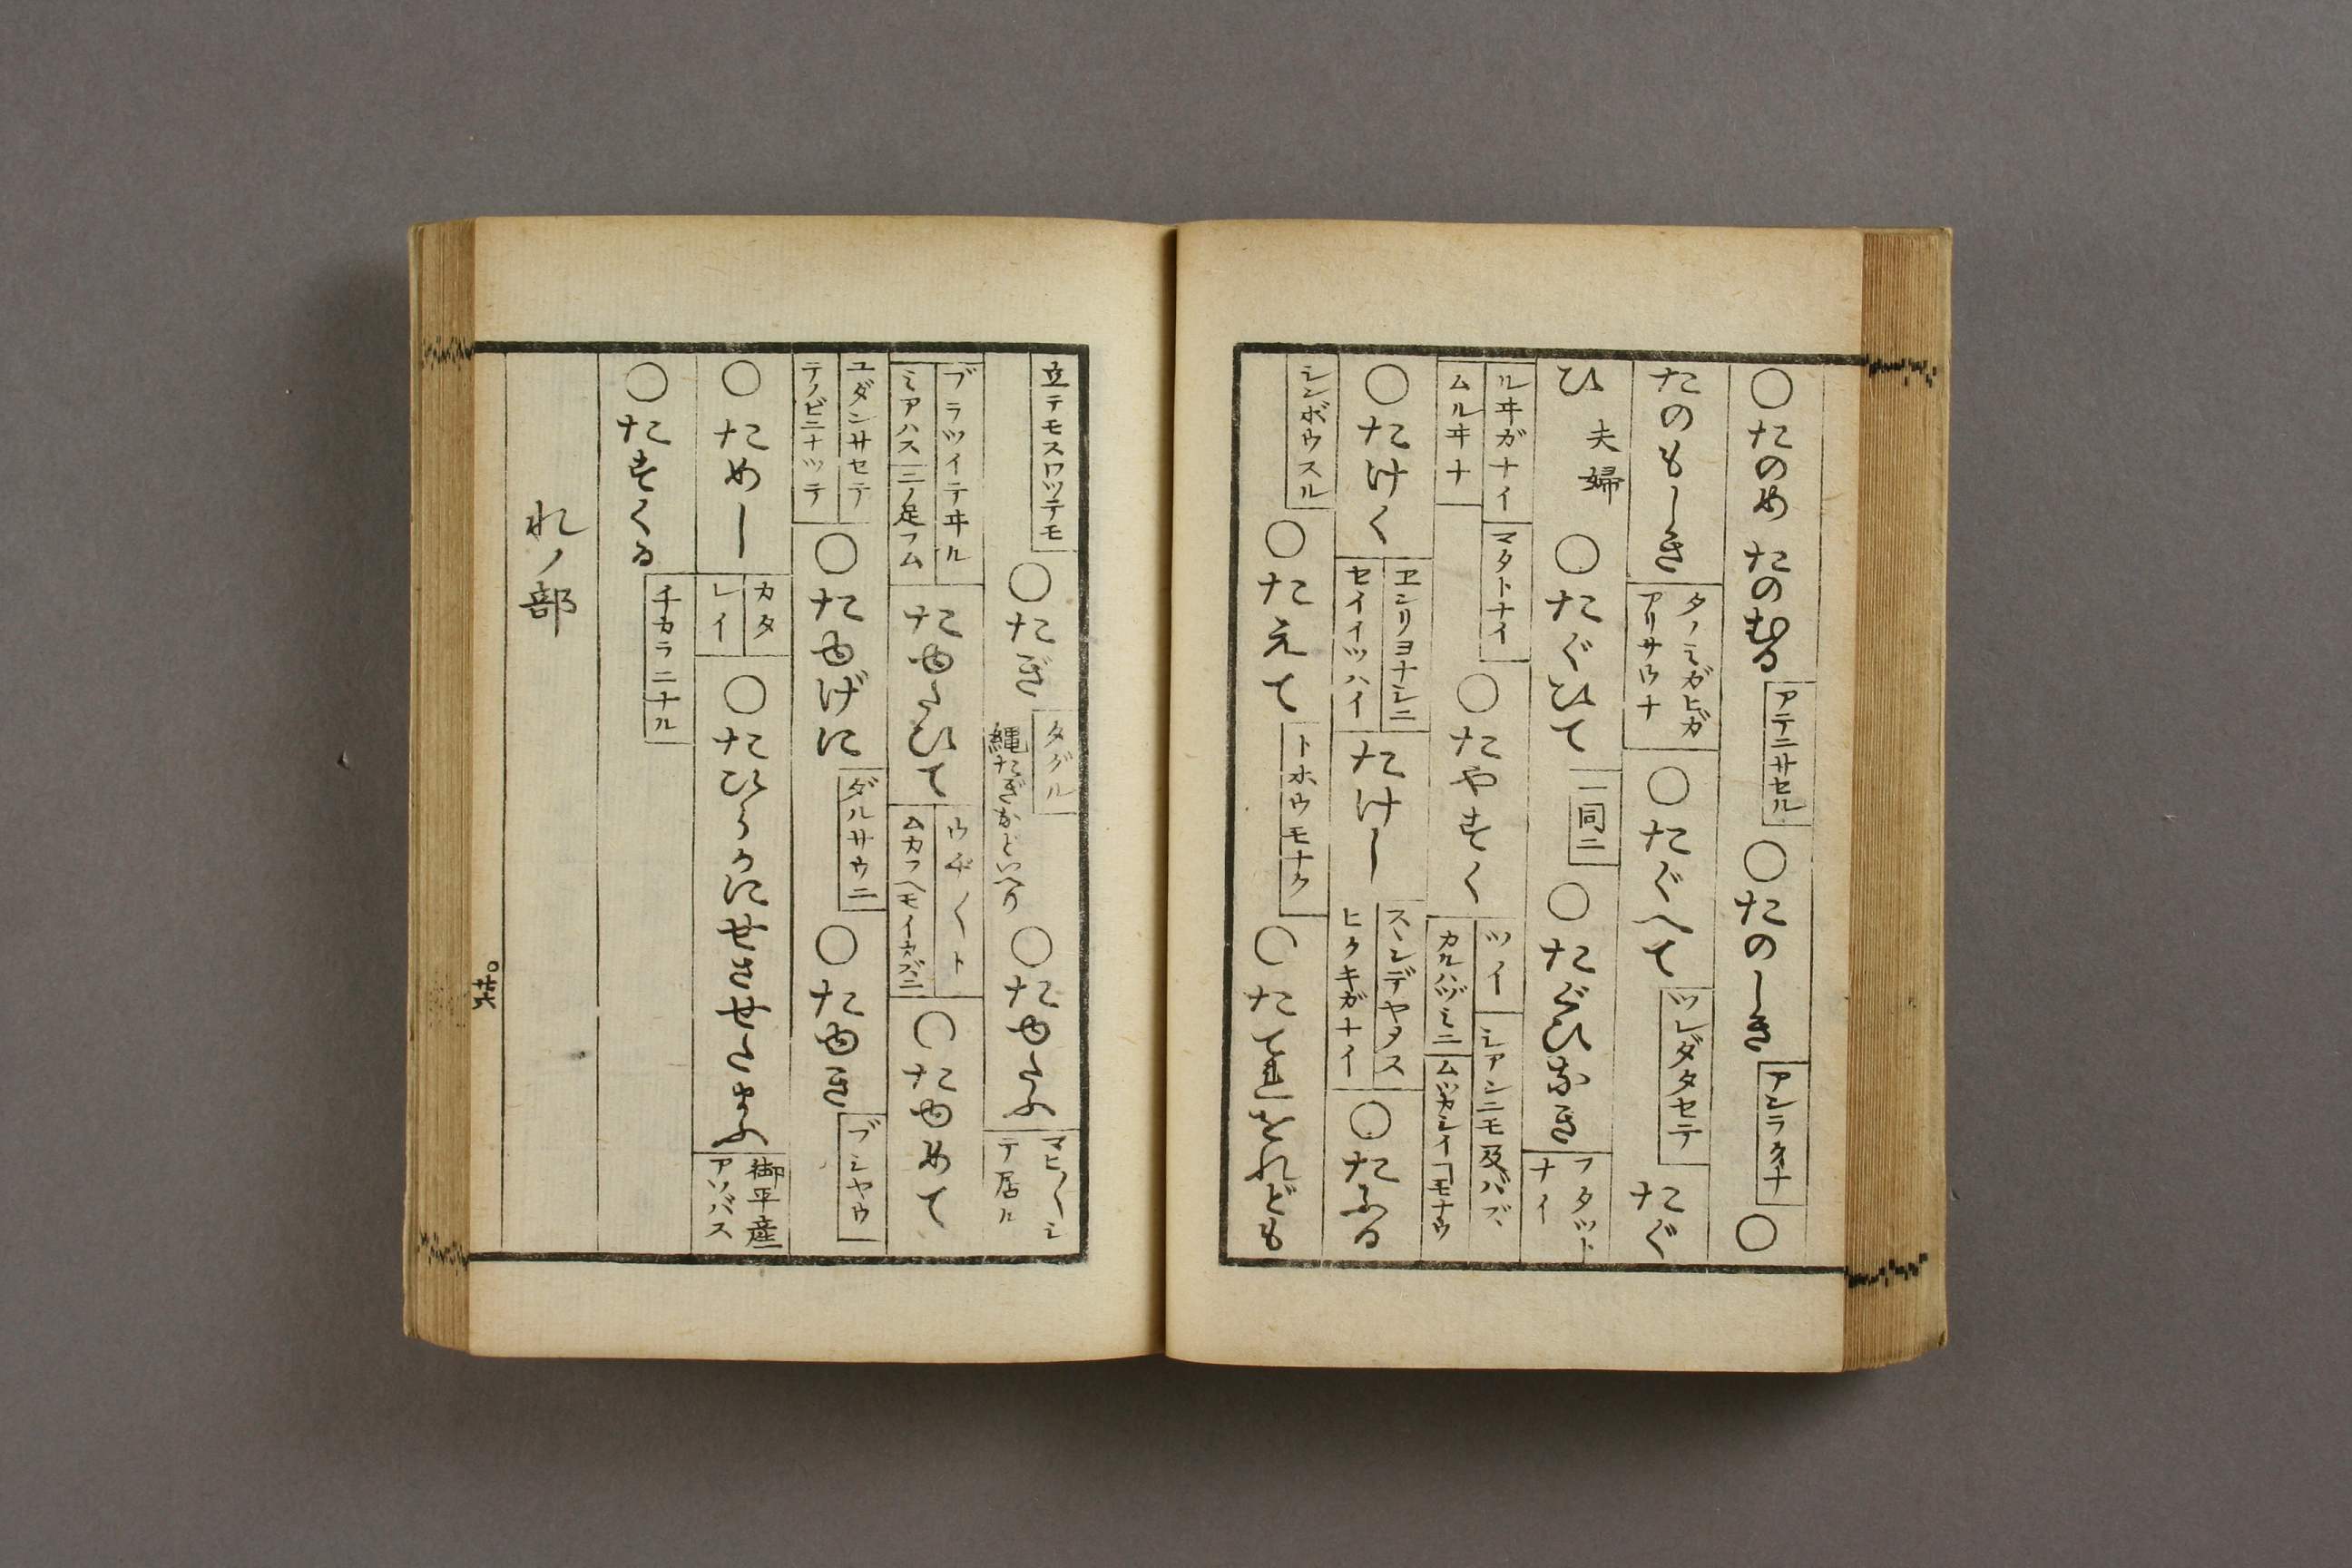 ○たのめ たのむる アテニサセル ○たのしき アンラクナ ○
たのもしき タノミガヒガアリサウナ ○たぐへて ツレダタセテ たぐ
ひ 夫婦 ○たぐひて 一同ニ ○たぐひなき フタツトナイ
ルヰガナイ ムルヰナ マタトナイ ○たやすく ツイ カルハヅミニ シアンニモ及バズ ムツカシイ ヿモナウ
○たけく ヱンリヨナシニ セイイツハイ たけし スヽンデヤタス ヒクキガナイ ○たふる
シンボウスル ○たえて トホウモナク ○たてれをれども
立テモスワツテモ ○たぎ タグル 縄たぎなどいへり ○たゆたふ マヒ〳〵シテ居ル
ブラツイテヰル ミアハス 三ノ足フム たゆたひて ウヂ〳〵ト ムカフヘモイカズニ ○たゆめて
ユダンサセテ テノビニナツテ ○たゆげに ダルサウニ ○たゆき ブシヤウ
○ためし カタ レイ ○たひらかにせさせたまふ 御平産アソバス
○たすくる チカラニナル
れノ部